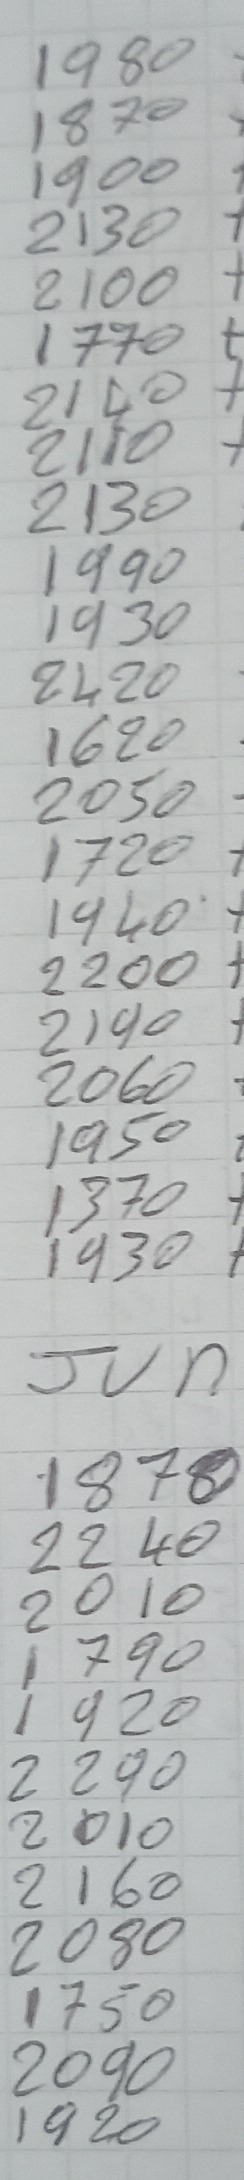 1980
1870
1900
2130 +
2100 +
1770 t
2140 +
2110 +
2130
1990
1930
2420
1620
2050
1720 +
1940 +
2200 +
2190 +
2060
1950
1370 +
1930 +
JUN
1870
2240
2010
1790
1920
2290
2010
2160
2080
1750
2090
1920